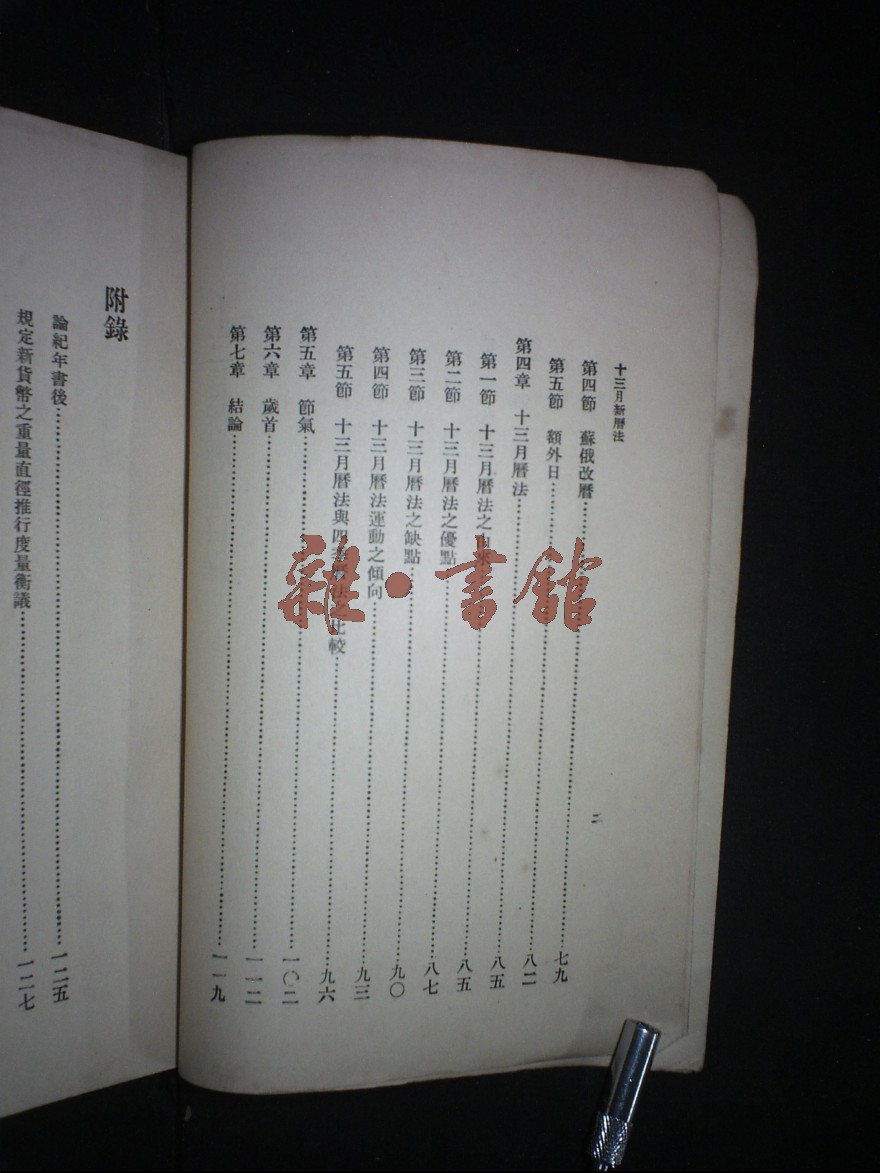 十三月新曆法
第四節 蘇俄改曆……七九
第五節 額外日……八二
第四章 十三月曆法……八五
第一節 十三月曆法之由來……八五
第二節 十三月曆法之優點……八七
第三節 十三月曆法之缺點……九〇
第四節 十三月曆法運動之傾向……九三
第五節 十三月曆法與四季曆法之比較……九六
第五章 節氣……一〇二
第六章 歲首……一一二
第七章 結論……一一九
二
附錄
論紀年書後……一二五
規定新貨幣之重量直徑推行度量衡議……一二七
雜·書館